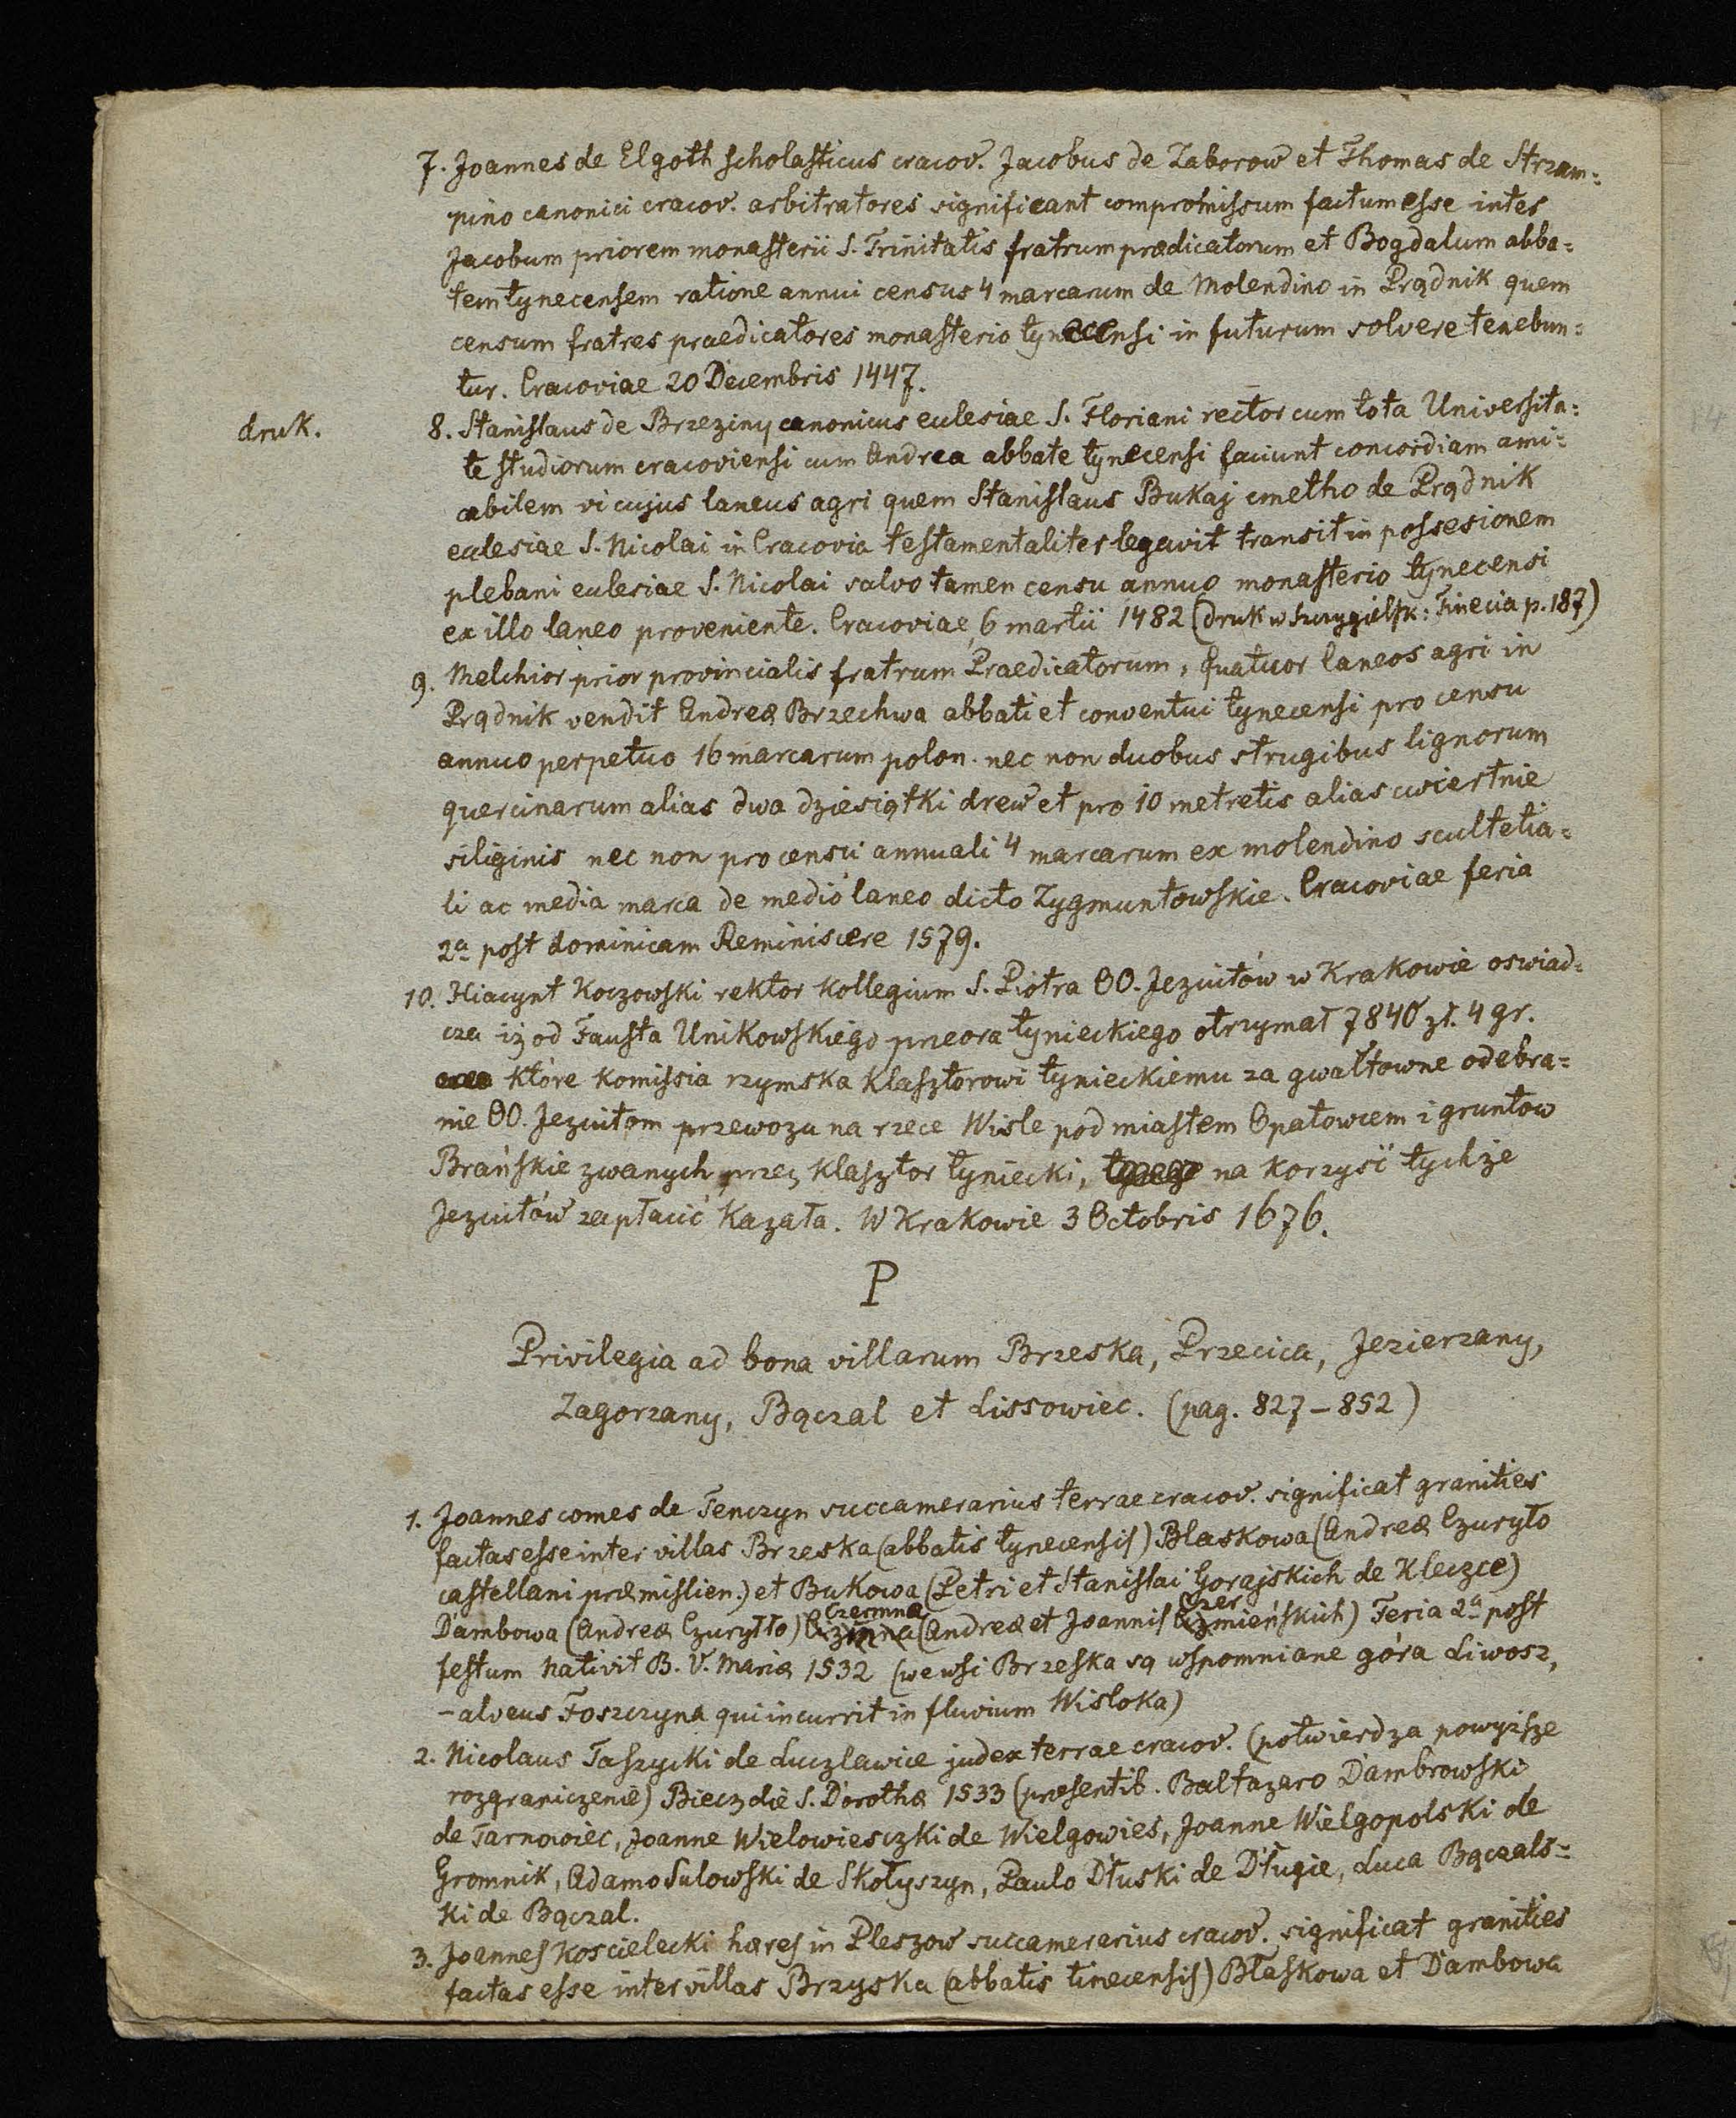 7. Joannes de Elgoth scholasticus cracov. Jacobus de Zaborow et Thomas de Strzam=
pino canonici cracov. arbitratores significant compromissum factum esse inter
Jacobum priorem monasterii S. Trinitatis fratrum prædicatorum et Bogdalum abba=
tem tynecensem ratione annui census 4 marcarum de Molendino in Prądnik quem
censum fratres praedicatores monasterio tynecensi in futurum solvere tenebun=
tur. Cracoviae 20 Decembris 1447.
druk.
8. Stanislaus de Brzeziny canonicus eclesiae S. Floriani rector cum tota Universita=
te studiorum cracoviensi cum Andrea abbate tynecensi faciunt concordiam ami=
cabilem vi cujus laneus agri quem Stanislaus Bukaj cmetho de Prądnik
eclesiae S. Nicolai in Cracovia testamentaliter legavit transit in possesionem
plebani eclesiae S. Nicolai salvo tamen censu annuo monasterio tynecensi
ex illo laneo proveniente. Cracoviae 6 martii 1482 (druk w Szczygielsk: Tinecia p. 187)
9. Melchior prior provincialis fratrum Praedicatorum, quatuor laneos agri in
Prądnik vendit Andreæ Brzechwa abbati et conventui tynecensi pro censu
annuo perpetuo 16 marcarum polon. nec non duobus strugibus lignorum
quercinarum alias dwa dziesiątki drew et pro 10 metretis alias cwiertnie
siliginis nec non pro censu annuali 4 marcarum ex molendino scultetia=
li ac media marca de medio laneo dicto Zygmuntowskie. Cracoviae feria
2a post dominicam Reminiscere 1579.
10. Hiacynt Koczowski rektor Kollegium S. Piotra OO. Jezuitów w Krakowie oswiad=
cza iż od Fausta Unikowskiego przeora tynieckiego otrzymał 7840 zł. 4 gr.
które komissia rzymska klasztorowi tynieckiemu za gwałtowne odebra=
nie OO. Jezuitom przewozu na rzece Wisle pod miastem Opatowcem i gruntow
Brańskie zwanych przez klasztor tyniecki, na korzysć tychże
Jezuitów zapłacić kazała. W Krakowie 3 Octobris 1676.
P
Privilegia ad bona villarum Brzeska, Przecica, Jezierzany,
Zagorzany, Bączal et Lissowiec. (pag. 827–852)
1. Joannes comes de Tenczyn succamerarius terrae cracov. significat granities
factas esse inter villas Brzeska (abbatis tynecensis) Blaskowa (Andreæ Czuryło
castellani præmislien.) et Bukowa (Petri et Stanislai Gorajskich de Kleczce)
Dambowa (Andreæ Czuryłło) Czermna (Andreæ et Joannis Czermieńskich) Feria 2a post
festum nativit B. V. Mariæ 1532 (we wsi Brzeska są wspomniane góra Liwosz,
– alveus Foszczyna qui incurrit in fluvium Wisloka)
2. Nicolaus Taszycki de Luczlawice judex terrae cracov. (potwierdza powyższe
rozgraniczenie) Biecz die S. Dorothæ 1533 (præsentib. Baltazaro Dambrowski
de Tarnowiec, Joanne Wielowiesczki de Wielgowies, Joanne Wielgopolski de
Gromnik, Adamo Sulowski de Skołyszyn, Paulo Dłuski de Długie, Luca Bączals=
ki de Bączal.
3. Joannes Koscielecki hæres in Pleszow succamerarius cracov. significat granities
factas esse inter villas Brzyska (abbatis tinecensis) Błaskowa et Dambowa